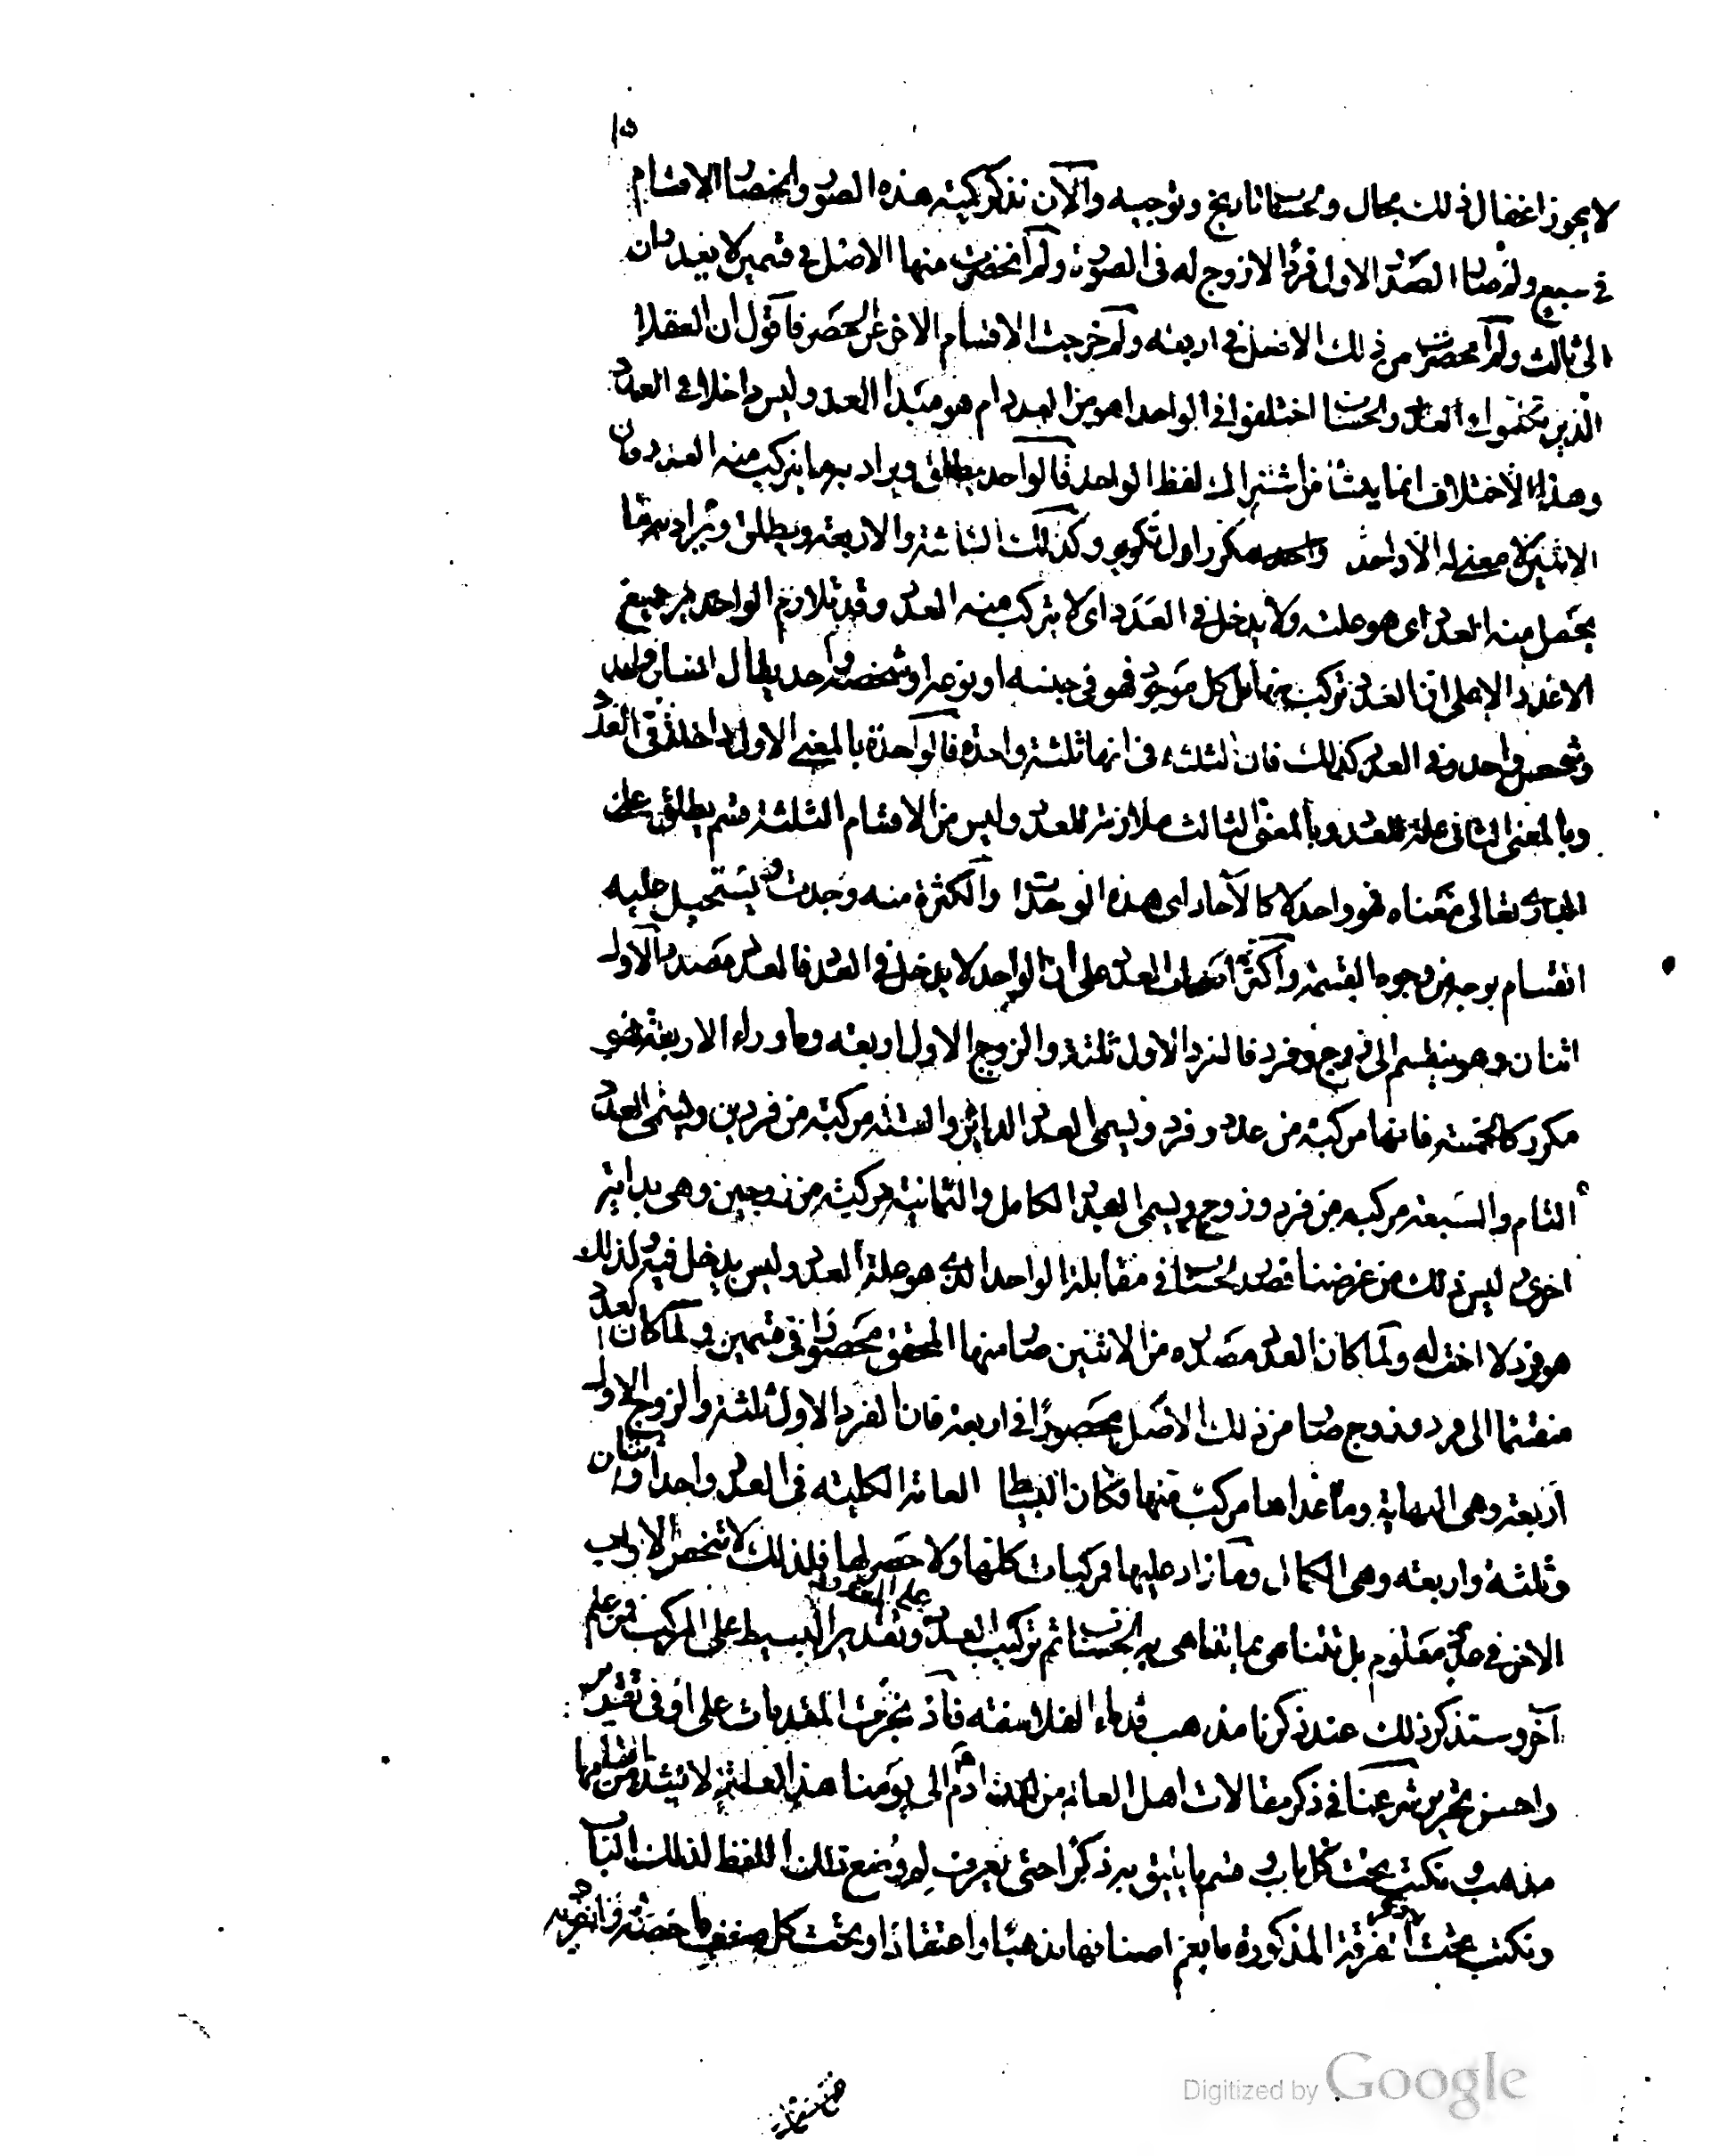 ١٥
لا يجوز اغفال ذلك بحال وبحساب تاريخ وتوجيه والآن نذكر كمية هذه الصور وانحصار الاقسام
في سبع ولم صار الصدر الاول فردا لا زوج له في الصورة ولم انحصرت منها الاصل في قسمين لا يعدوان
الى ثالث ولم انحصرت من ذلك الاصل في اربعة ولم خرجت الاقسام الاخر عن الحصر فاقول ان العقلاء
الذين تكلموا في العدد والحساب اختلفوا في الواحد اهو من العدد ام هو مبدا العدد وليس داخلا في العدد
وهذا الاختلاف انما ينشأ من اشتراك لفظ الواحد فالواحد يطلق ويراد به ما يتركب منه العدد فان
الاثنين لا معنى له الا واحد مكرر اول تكرير وكذلك الثلثة والاربعة ويطلق ويراد به ما
يحصل منه العدد اى هو علته ولا يدخل في العدد اى لا يتركب منه العدد وقد تلازم الواحدية جميع
الاعداد لا على ان العدد تركب منها بل كل موجود فهو في جنسه او نوعه او شخصه واحد يقال انسان واحد
وشخص واحد وفي العدد كذلك فان الثلثة في انها ثلثة واحدة فالواحدة بالمعنى الاول داخلة في العدد
وبالمعنى الثانى علة للعدد وبالمعنى الثالث ملازمة للعدد وليس من الاقسام الثلثة قسم يطلق على
البارى تعالى معناه فهو واحد لا كالآحاد اى هذه الوحدات والكثرة منه وجدت ويستحيل عليه
انقسام بوجه من وجوه القسمة واكثر اصحاب العدد على ان الواحد لا يدخل في العدد فالعدد مصدره الاول
اثنان وهو ينقسم الى زوج وفرد فالفرد الاول ثلثة والزوج الاول اربعة وما وراء الاربعة فهو
مكرر كالخمسة فانها مركبة من عدد وفرد ويسمى العدد الدائر والستة مركبة من فردين ويسمى العدد
التام والسبعة مركبة من فرد وزوج ويسمى العدد الكامل والثمانية مركبة من زوجين وهى بداية
اخرى ليس ذلك من غرضنا فصدر الحساب في مقابلة الواحد الذى هو علة العدد وليس يدخل فيه ولذلك
هو فرد لا اخت له ولما كان العدد مصدره من الاثنين صار منها المحقق محصورا في قسمين ولما كان العدد
منقسما الى فرد وزوج صار من ذلك الاصل محصورا في اربعة فان الفرد الاول ثلثة والزوج الاول
اربعة وهى النهاية وما عداها مركب منها فكان البسائط العامة الكلية في العدد واحد واثنان
وثلثة واربعة وهى الكمال وما زاد عليها فمركبات كلها ولا حصر لها فلذلك لا تنحصر الابواب
الاخر في عدد معلوم بل تتناهى بما يتناهى به الحساب ثم تركيب العدد على المعدود وتقدير البسيط على المركب فمن علم
آخر وسنذكر ذلك عند ذكرنا مذهب قدماء الفلاسفة فاذا نجزت المقدمات على اوفى تقرير
واحسن تحرير شرعنا في ذكر مقالات اهل العالم من لدن ادم الى يومنا هذا لعله لا يشذ من اقسامها
مذهب ونكتب تحت كل باب وقسم ما يليق به ذكرا حتى يعرف لم وضع ذلك اللفظ لذلك الباب
ونكتب تحت ذكر الفرقة المذكورة ما يعم اصنافها مذهبا واعتقادا وتحت كل صنف ما خصه وانفرد به
Digitized by Google